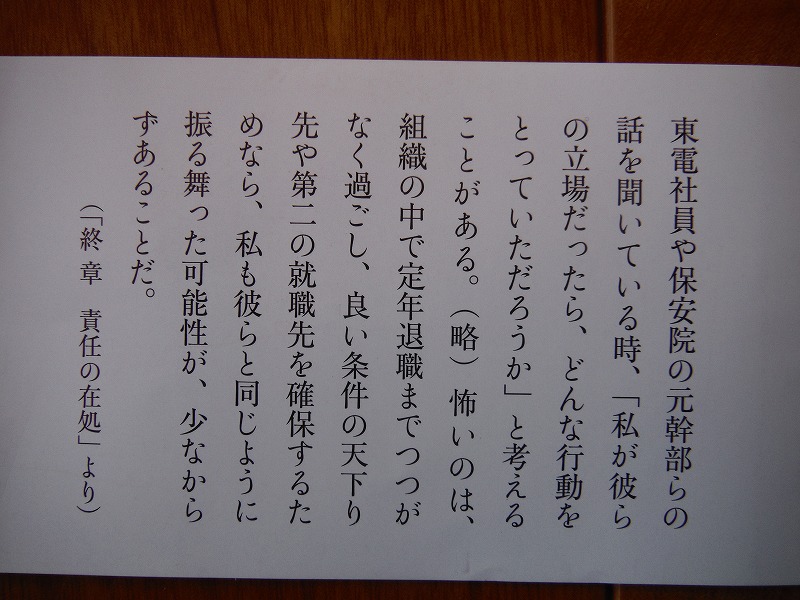 東電社員や保安院の元幹部らの
話を聞いている時、「私が彼ら
の立場だったら、どんな行動を
とっていただろうか」と考える
ことがある。（略）怖いのは、
組織の中で定年退職までつつが
なく過ごし、良い条件の天下り
先や第二の就職先を確保するた
めなら、私も彼らと同じように
振る舞った可能性が、少なから
ずあることだ。
（「終章　責任の在処」より）